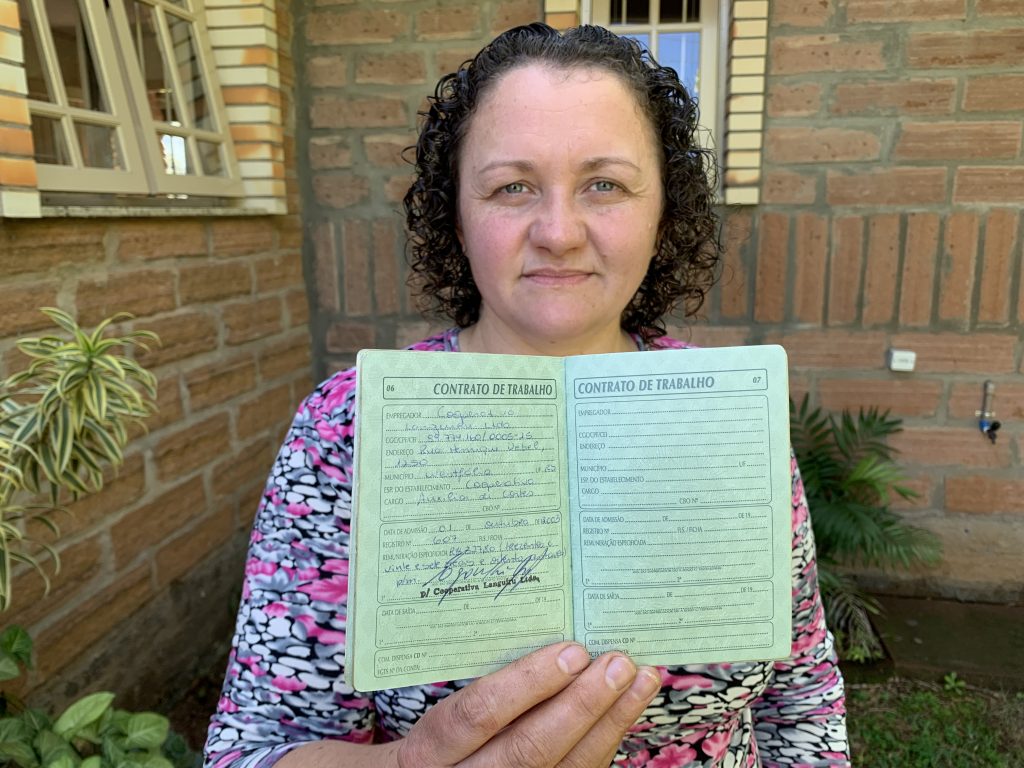 06 CONTRATO DE TRABALHO
EMPREGADOR Cooperativa
Languiru Ltda
CGC/CPF/CEI 89.774.160/0005-25
ENDEREÇO Rua Henrique Uebel,
1250
MUNICÍPIO Westfália UF RS
ESP. DO ESTABELECIMENTO Cooperativa
CARGO Auxiliar de Cortes
CBO Nº
DATA DE ADMISSÃO 01 DE outubro DE
REGISTRO Nº 607 FLS./FICHA
REMUNERAÇÃO ESPECIFICADA
vinte e sete reais e oitenta
p/m
P/ Cooperativa Languiru Ltda.
1º 2º
DATA DE SAÍDA DE DE 19
1º 2º
COM. DISPENSA CD Nº
FGTS Nº DA CONTA
CONTRATO DE TRABALHO 07
EMPREGADOR
CGC/CPF/CEI
ENDEREÇO
MUNICÍPIO UF
ESP. DO ESTABELECIMENTO
CARGO
CBO Nº
DATA DE ADMISSÃO DE DE 19
REGISTRO Nº FLS./FICHA
REMUNERAÇÃO ESPECIFICADA
1º 2º
DATA DE SAÍDA DE DE 19
1º 2º
COM. DISPENSA CD Nº
FGTS Nº DA CONTA